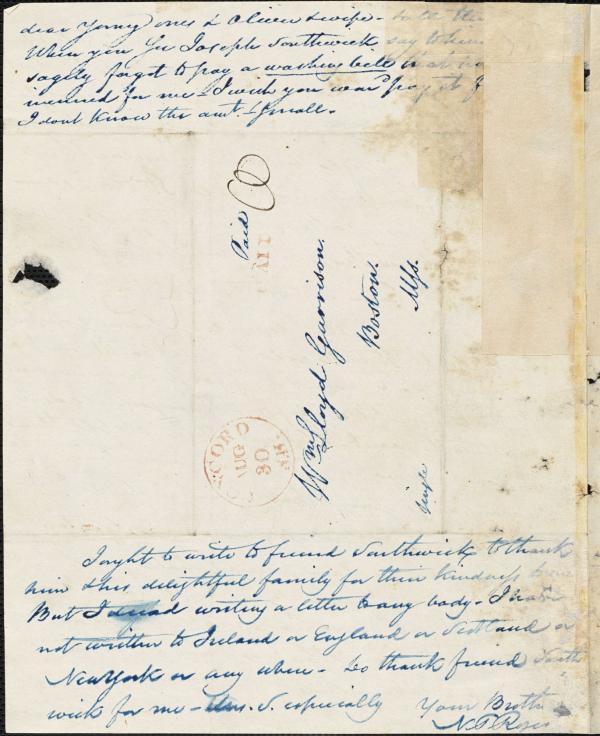 dear young ones & Oliver & wife -
When you see Joseph Southwick say to him
sagely forgot to pay a washing bill
incurred for me - I wish you wd pay it
I don't know the amt. - Small.
Paid
VII
Wm Lloyd Garrison.
Boston.
Mss.
Single
CONCORD
AUG
30
N.H.
I ought to write to friend Southwick to thank
him & his delightful family for their kindness to me
But I dread writing a letter to any body - I have
not written to Ireland or England or Scotland or
New York or any where - Do thank friend South
wick for me - Mrs. S. especially Your Broth
N. P. Rogers